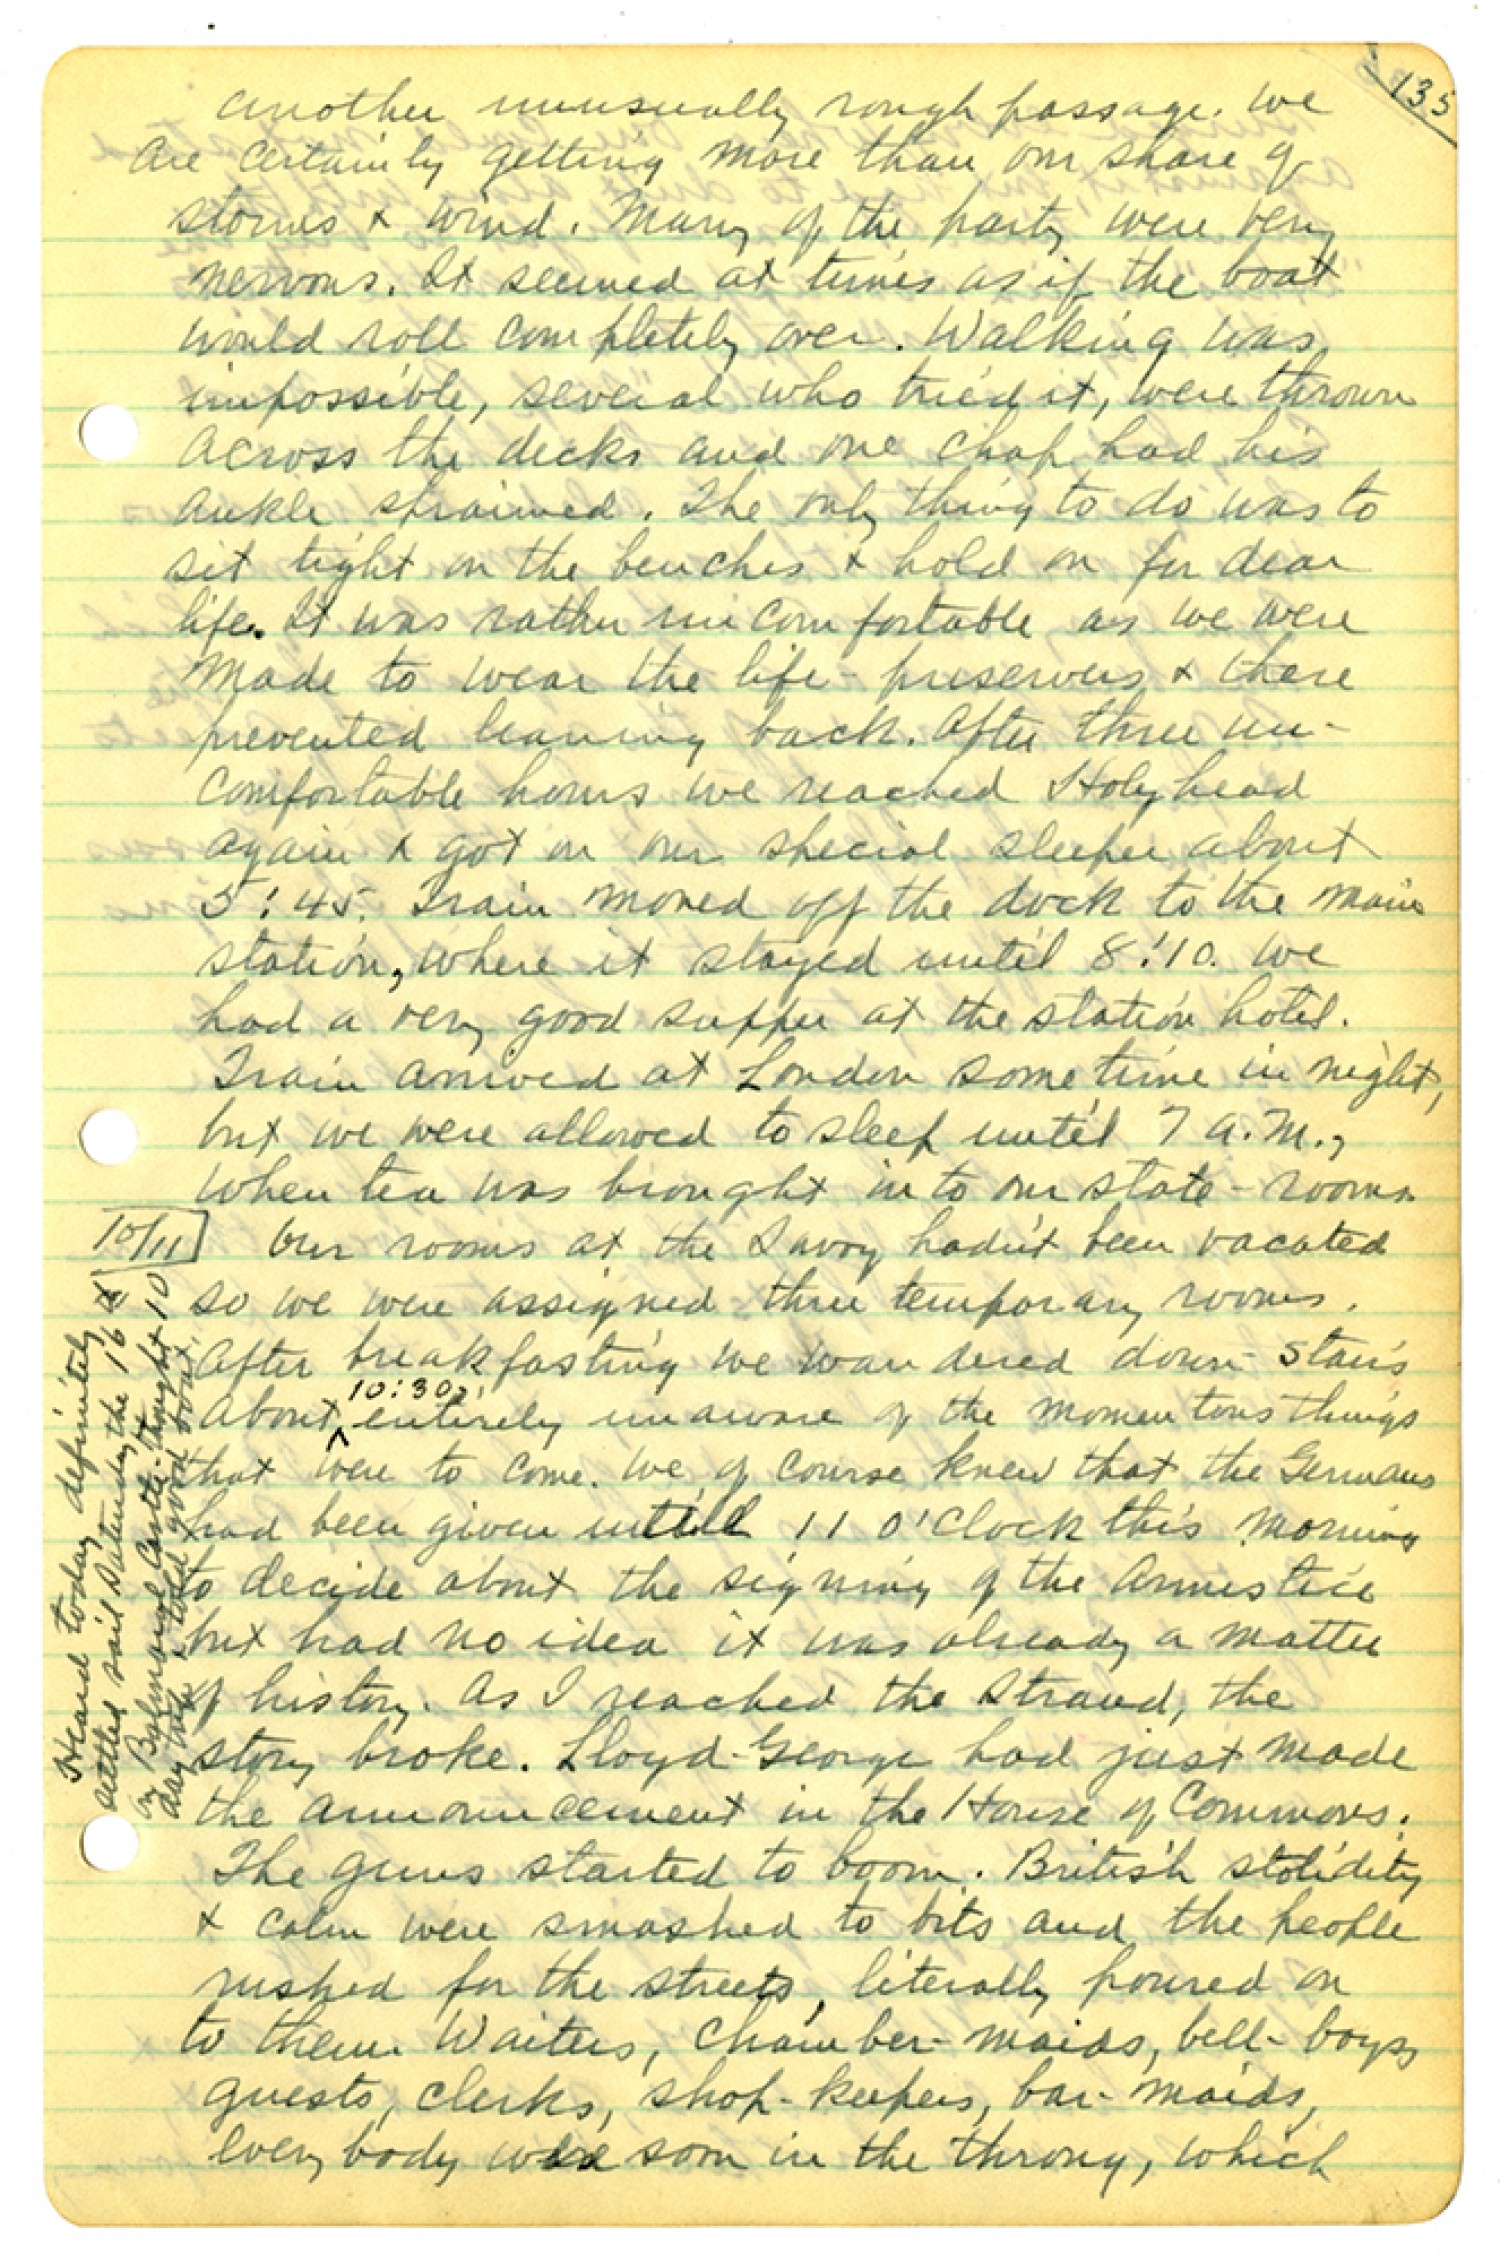 135
another unusually rough passage. We
are certainly getting more than our share of
storms & wind. Many of the party were very
nervous. It seemed at times as if the boat
would roll completely over. Walking was
impossible, several who tried it, were thrown
across the decks and one chap had his
ankle sprained. The only thing to do was to
sit tight on the benches & hold on for dear
life. It was rather uncomfortable as we were
made to wear the life-preservers & these
prevented leaning back. After three un-
comfortable hours we reached Holyhead
again & got on our special sleeper about
5:45. Train moved off the dock to the main
station, where it stayed until 8:10. We
had a very good supper at the station hotel.
Train arrived at London some time in night,
but we were allowed to sleep until 7 a.m.,
when tea was brought in to our state-rooms
10/11 Our rooms at the Savoy hadn't been vacated
so we were assigned three temporary rooms.
After breakfasting we wandered down-stairs
about 10:30, entirely unaware of the momentous things
that were to come. We of course knew that the Germans
had been given untill 11 o'clock this morning
to decide about the signing of the Armistice
but had no idea it was already a matter
of history. As I reached the Strand, the
story broke. Lloyd-George had just made
the announcement in the House of Commons.
The guns started to boom. British stolidity
& calm were smashed to bits and the people
rushed for the streets, literally poured on
to them. Waiters, chamber-maids, bell-boys
guests, clerks, shop-keepers, bar-maids,
every body were soon in the throng, which
Heard today definitely
settled sail Saturday the 16th
on Balmoral Castle-thought 10
day trip told good boat.